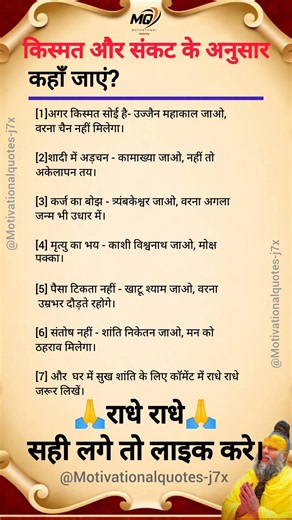 MQ
MOTIVATIONAL
QUOTES
किस्मत और संकट के अनुसार
कहाँ जाएं?
[1]अगर किस्मत सोई है- उज्जैन महाकाल जाओ,
वरना चैन नहीं मिलेगा।
[2]शादी में अड़चन - कामाख्या जाओ, नहीं तो
अकेलापन तय।
[3] कर्ज का बोझ - त्र्यंबकेश्वर जाओ, वरना अगला
जन्म भी उधार में।
[4] मृत्यु का भय - काशी विश्वनाथ जाओ, मोक्ष
पक्का।
[5] पैसा टिकता नहीं - खाटू श्याम जाओ, वरना
उम्रभर दौड़ते रहोगे।
[6] संतोष नहीं - शांति निकेतन जाओ, मन को
ठहराव मिलेगा।
[7] और घर में सुख शांति के लिए कॉमेंट में राधे राधे
जरूर लिखें।
🙏राधे राधे🙏
सही लगे तो लाइक करे।
@Motivationalquotes-j7x
@Motivationalquotes-j7x
@Motivationalquotes-j7x